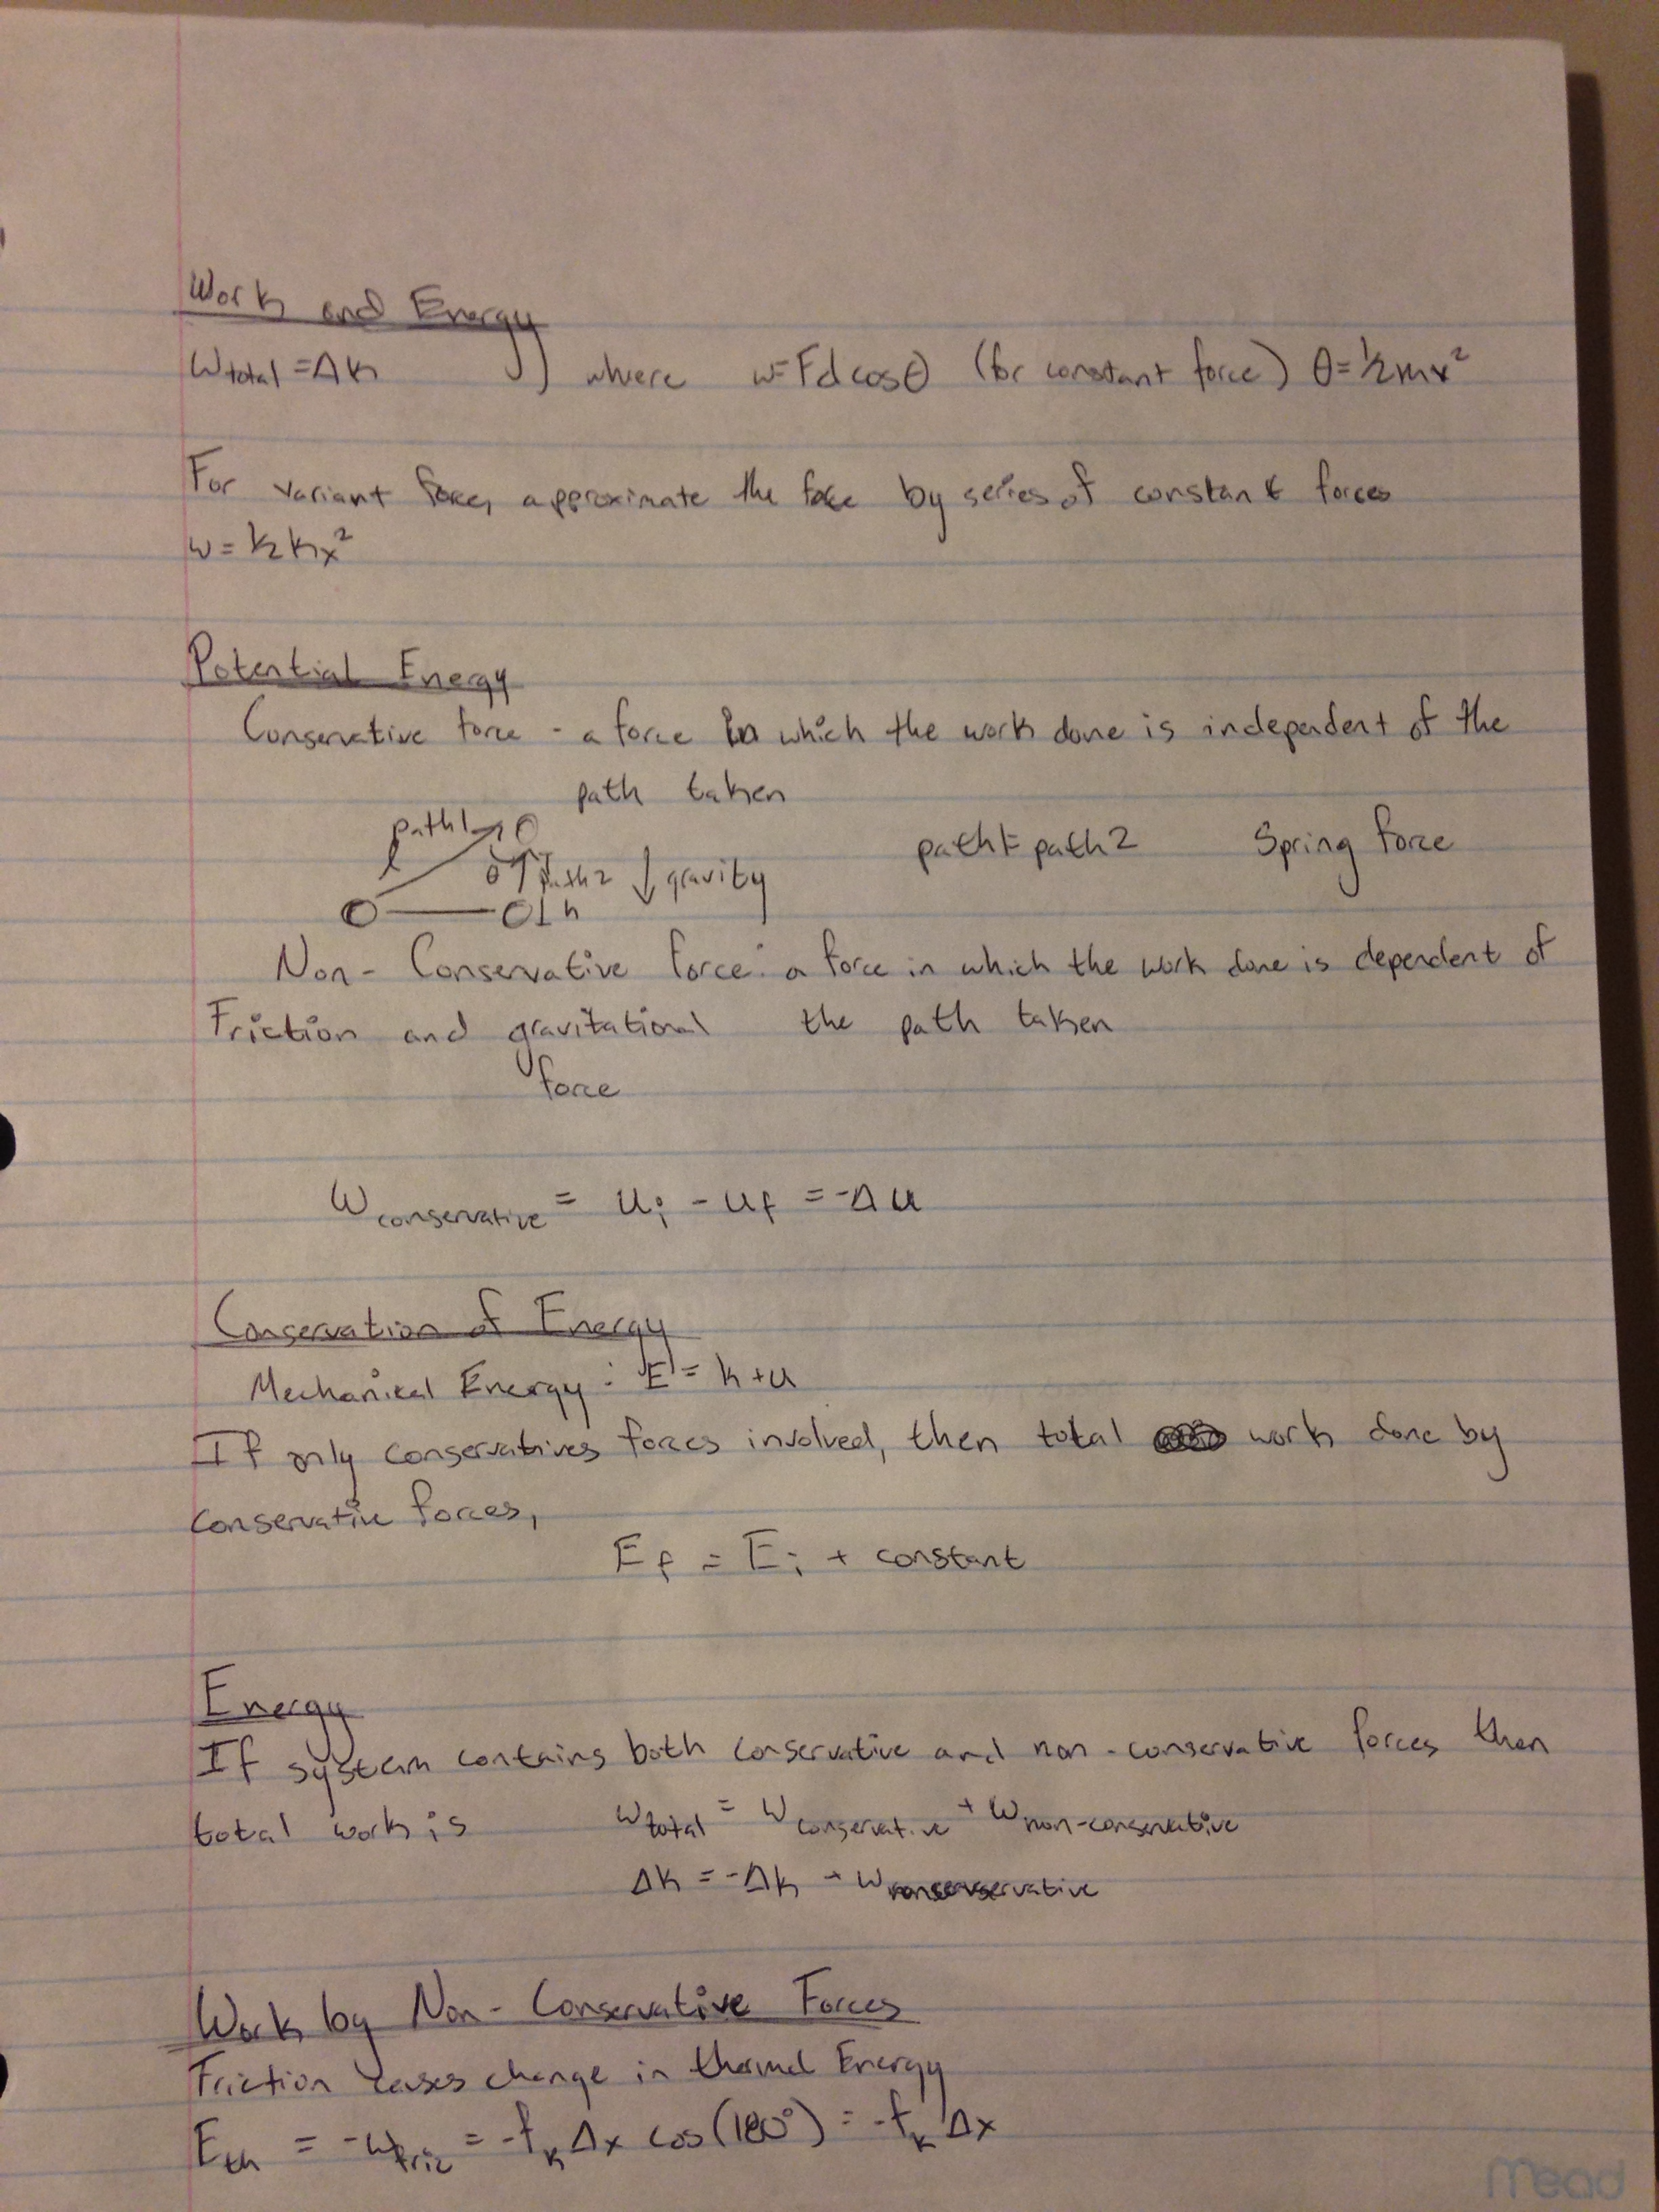 Work and Energy
Wtotal = Δk where w=Fdcosθ (for constant force) θ=½mv²
For variant force, approximate the force by series of constant forces
w = ½kx²
Potential Energy
Conservative force - a force in which the work done is independent of the
path taken
path1
θ path2 ↓gravity path1=path2 Spring force
h
Non-Conservative force: a force in which the work done is dependent of
Friction and gravitational the path taken
force
Wconservative = Ui - Uf = -ΔU
Conservation of Energy
Mechanical Energy: E = k+u
If only conservatives forces involved, then total work done by
conservative forces,
Ef = Ei + constant
Energy
If system contains both conservative and non-conservative forces then
total work is Wtotal = Wconservative + Wnon-conservative
Δk = -Δk + Wnonconservative
Work by Non-Conservative Forces
Friction causes change in thermal Energy
Eth = -Wfric = -fk Δx cos(180°) = -fk Δx
Mead